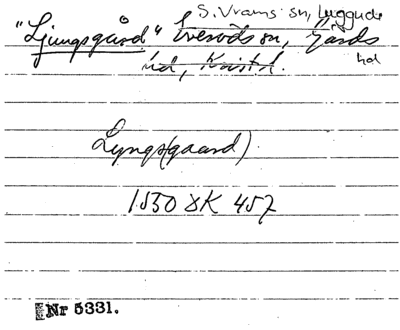 S. Vrams sn, Luggude
"Ljungsgård" Everöds sn, Gärds
hd
hd, Krist. l.
Lyngs(gaard)
1550 DK 457
Nr 5331.